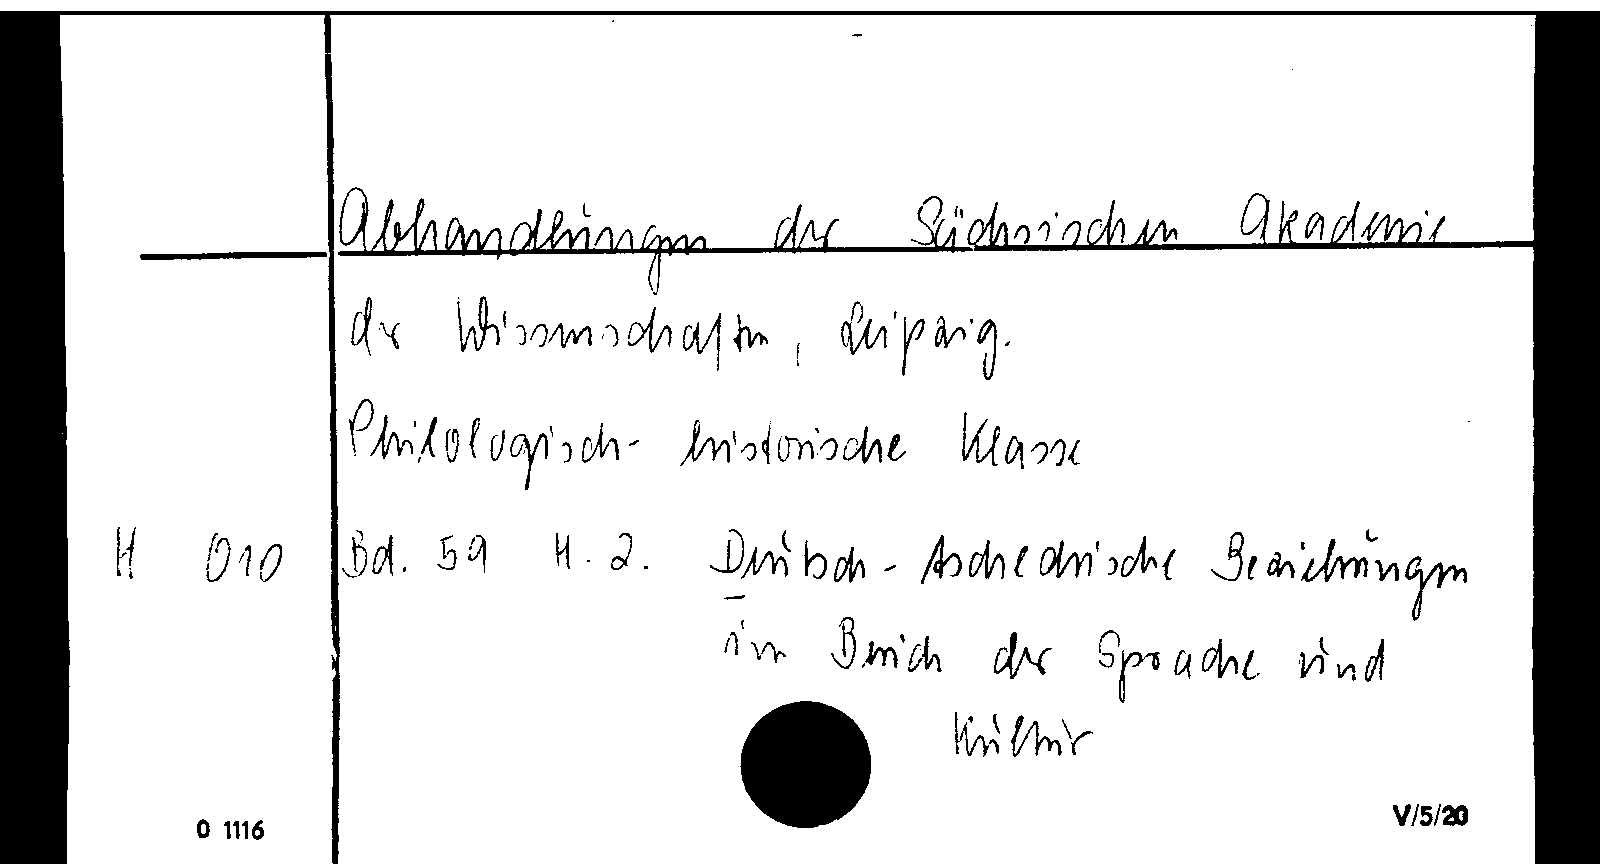 Abhandlungen der Sächsischen Akademie
der Wissenschaften, Leipzig.
Philologisch-historische Klasse
H 010 Bd. 59 H. 2. Deutsch-tschechische Beziehungen
im Bereich der Sprache und
Kultur
O 1116 V/5/20